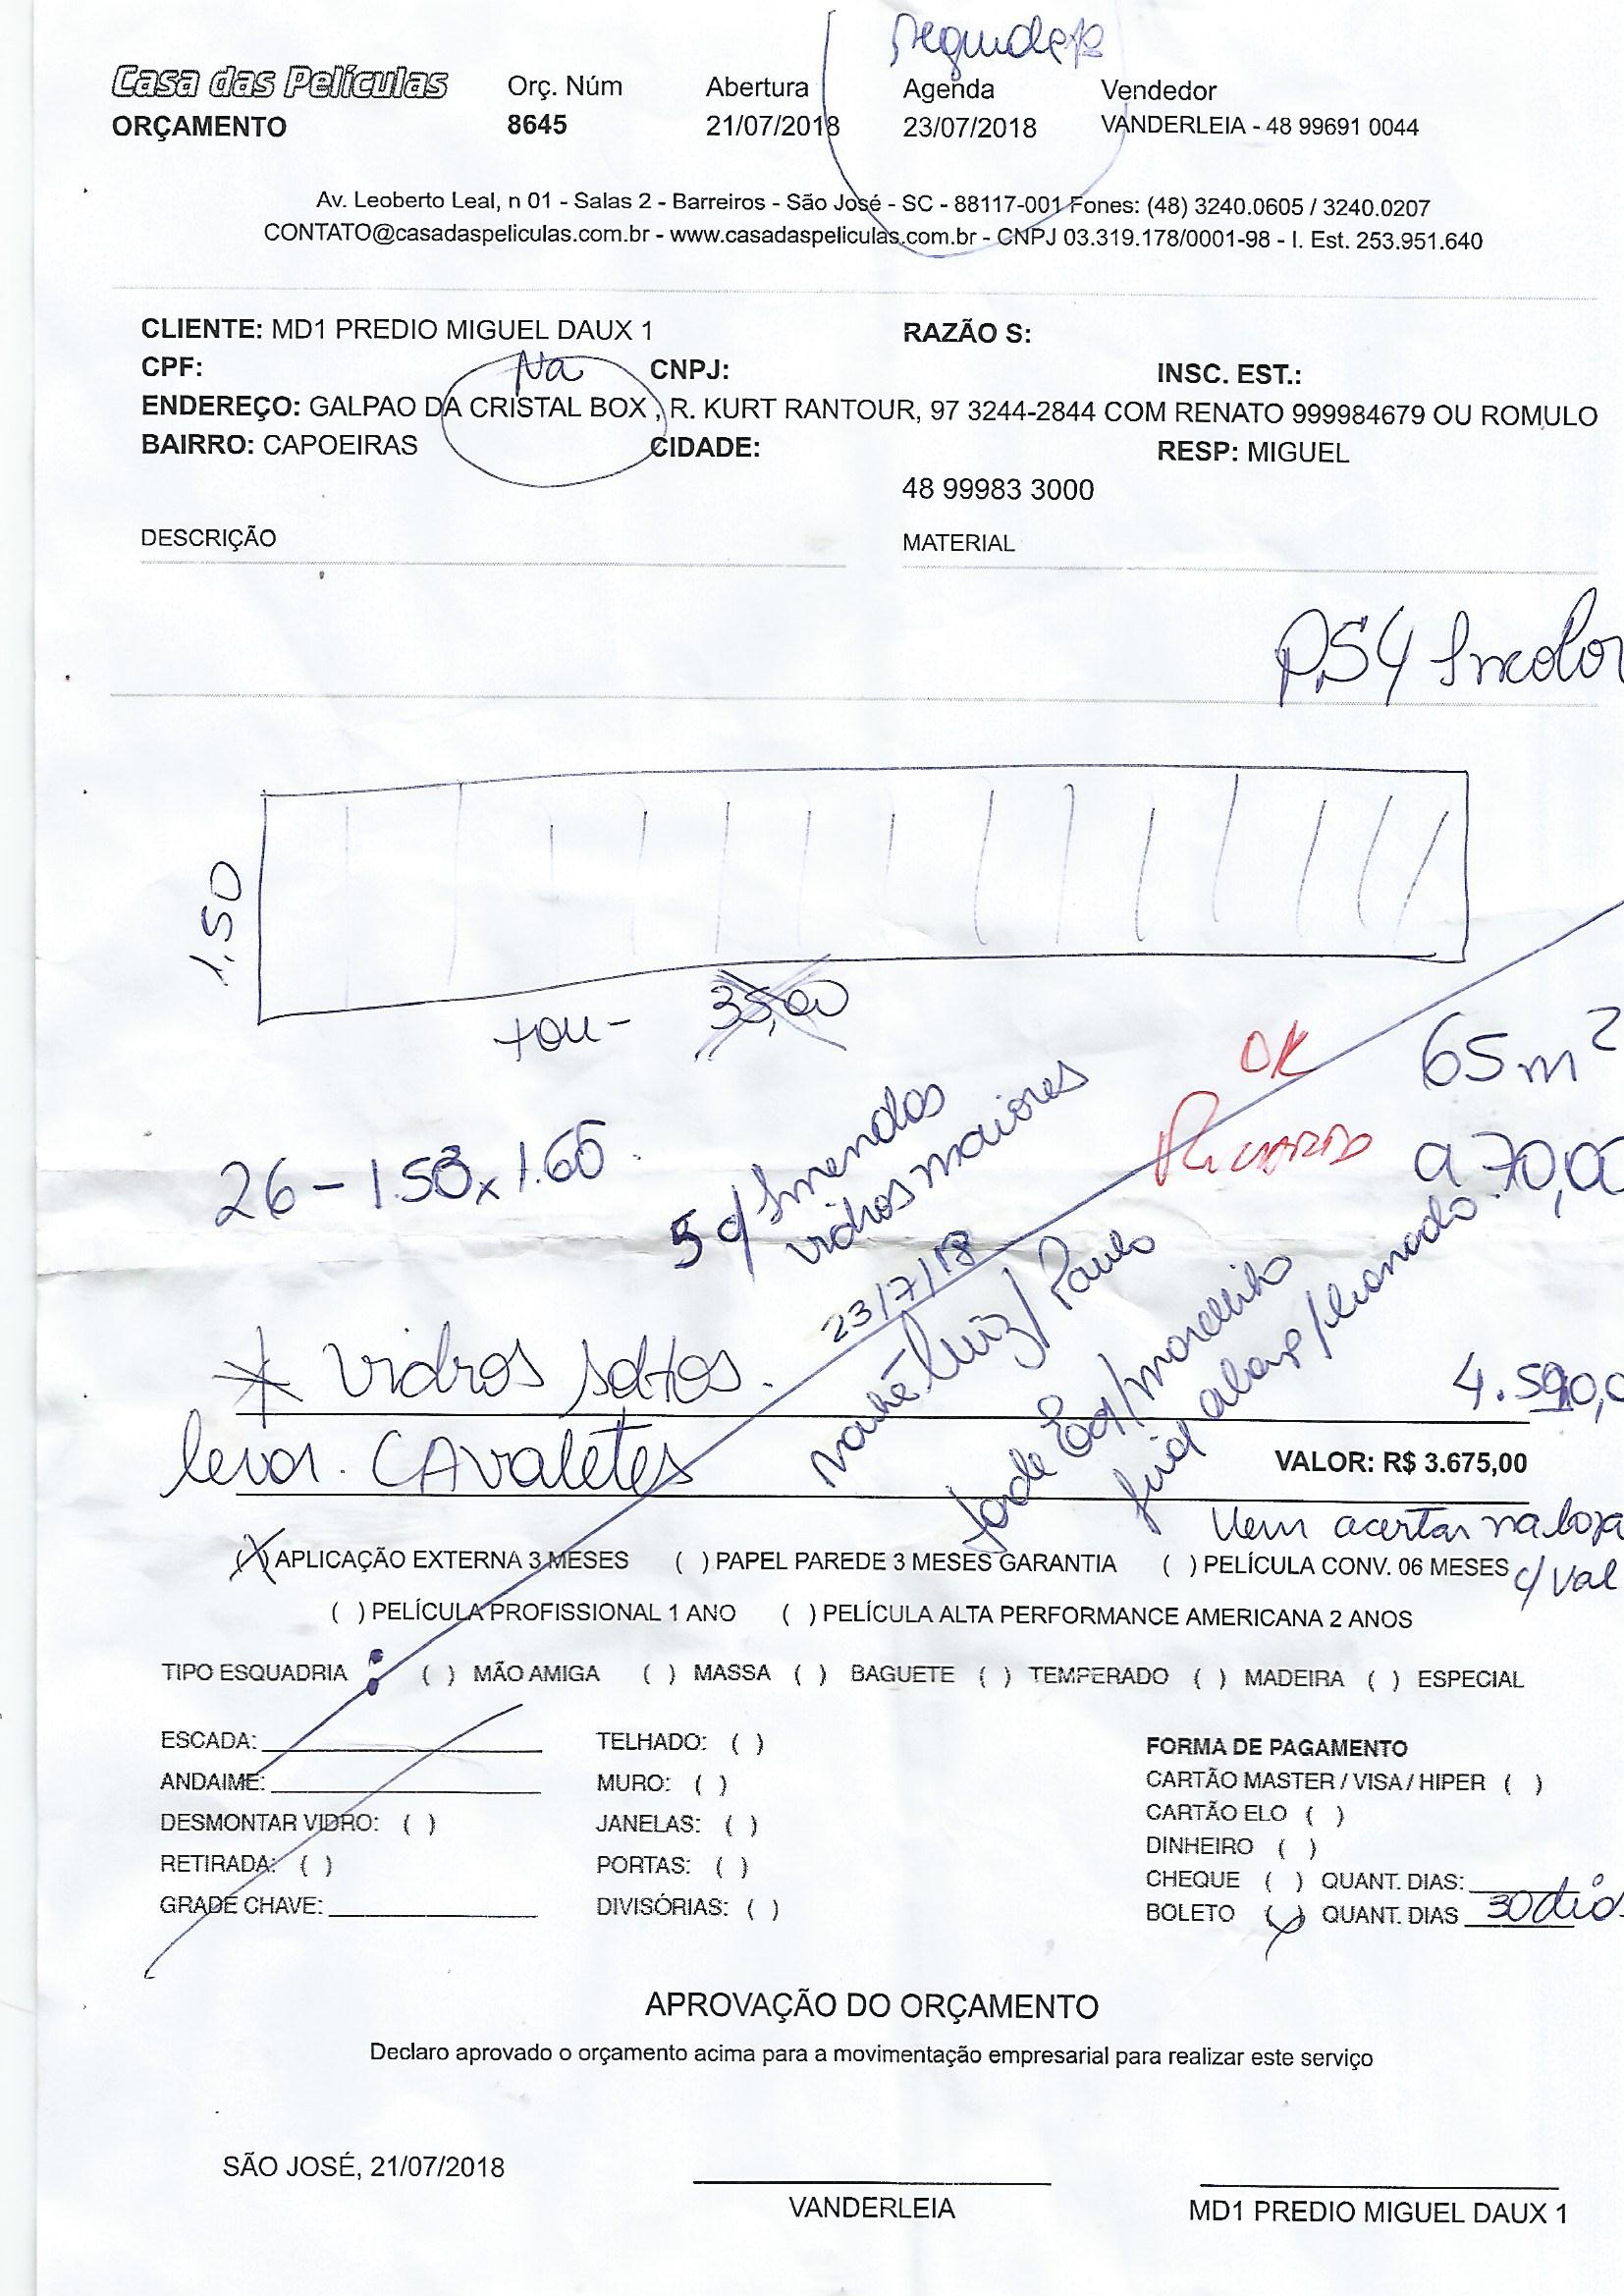 Segunda
Casa das Películas
ORÇAMENTO
Orç. Núm
8645
Abertura
21/07/2018
Agenda
23/07/2018
Vendedor
VANDERLEIA - 48 99691 0044
Av. Leoberto Leal, n 01 - Salas 2 - Barreiros - São José - SC - 88117-001 Fones: (48) 3240.0605 / 3240.0207
CONTATO@casadaspeliculas.com.br - www.casadaspeliculas.com.br - CNPJ 03.319.178/0001-98 - I. Est. 253.951.640
CLIENTE: MD1 PREDIO MIGUEL DAUX 1 RAZÃO S:
CPF: Na CNPJ: INSC. EST.:
ENDEREÇO: GALPAO DA CRISTAL BOX , R. KURT RANTOUR, 97 3244-2844 COM RENATO 999984679 OU ROMULO
BAIRRO: CAPOEIRAS CIDADE: RESP: MIGUEL
48 99983 3000
DESCRIÇÃO MATERIAL
PS4 Incolor
1,50
+ou- 35,00
65m²
OK
RICARDO
a 70,0
26 - 1.58 x 1.66
5 c/ Imendas
vidros maiores
23/7/18
manhã Luiz/Paulo
tarde Ed/marcelito
* Vidros soltos.
levar. CAvaletes
4.590,0
VALOR: R$ 3.675,00
Vem acertar na loja
c/ Val
(X) APLICAÇÃO EXTERNA 3 MESES ( ) PAPEL PAREDE 3 MESES GARANTIA ( ) PELÍCULA CONV. 06 MESES
( ) PELÍCULA PROFISSIONAL 1 ANO ( ) PELÍCULA ALTA PERFORMANCE AMERICANA 2 ANOS
TIPO ESQUADRIA : ( ) MÃO AMIGA ( ) MASSA ( ) BAGUETE ( ) TEMPERADO ( ) MADEIRA ( ) ESPECIAL
ESCADA:
ANDAIME:
DESMONTAR VIDRO: ( )
RETIRADA: ( )
GRADE CHAVE:
TELHADO: ( )
MURO: ( )
JANELAS: ( )
PORTAS: ( )
DIVISÓRIAS: ( )
FORMA DE PAGAMENTO
CARTÃO MASTER / VISA / HIPER ( )
CARTÃO ELO ( )
DINHEIRO ( )
CHEQUE ( ) QUANT. DIAS:
BOLETO (X) QUANT. DIAS 30 dias
APROVAÇÃO DO ORÇAMENTO
Declaro aprovado o orçamento acima para a movimentação empresarial para realizar este serviço
SÃO JOSÉ, 21/07/2018
VANDERLEIA
MD1 PREDIO MIGUEL DAUX 1